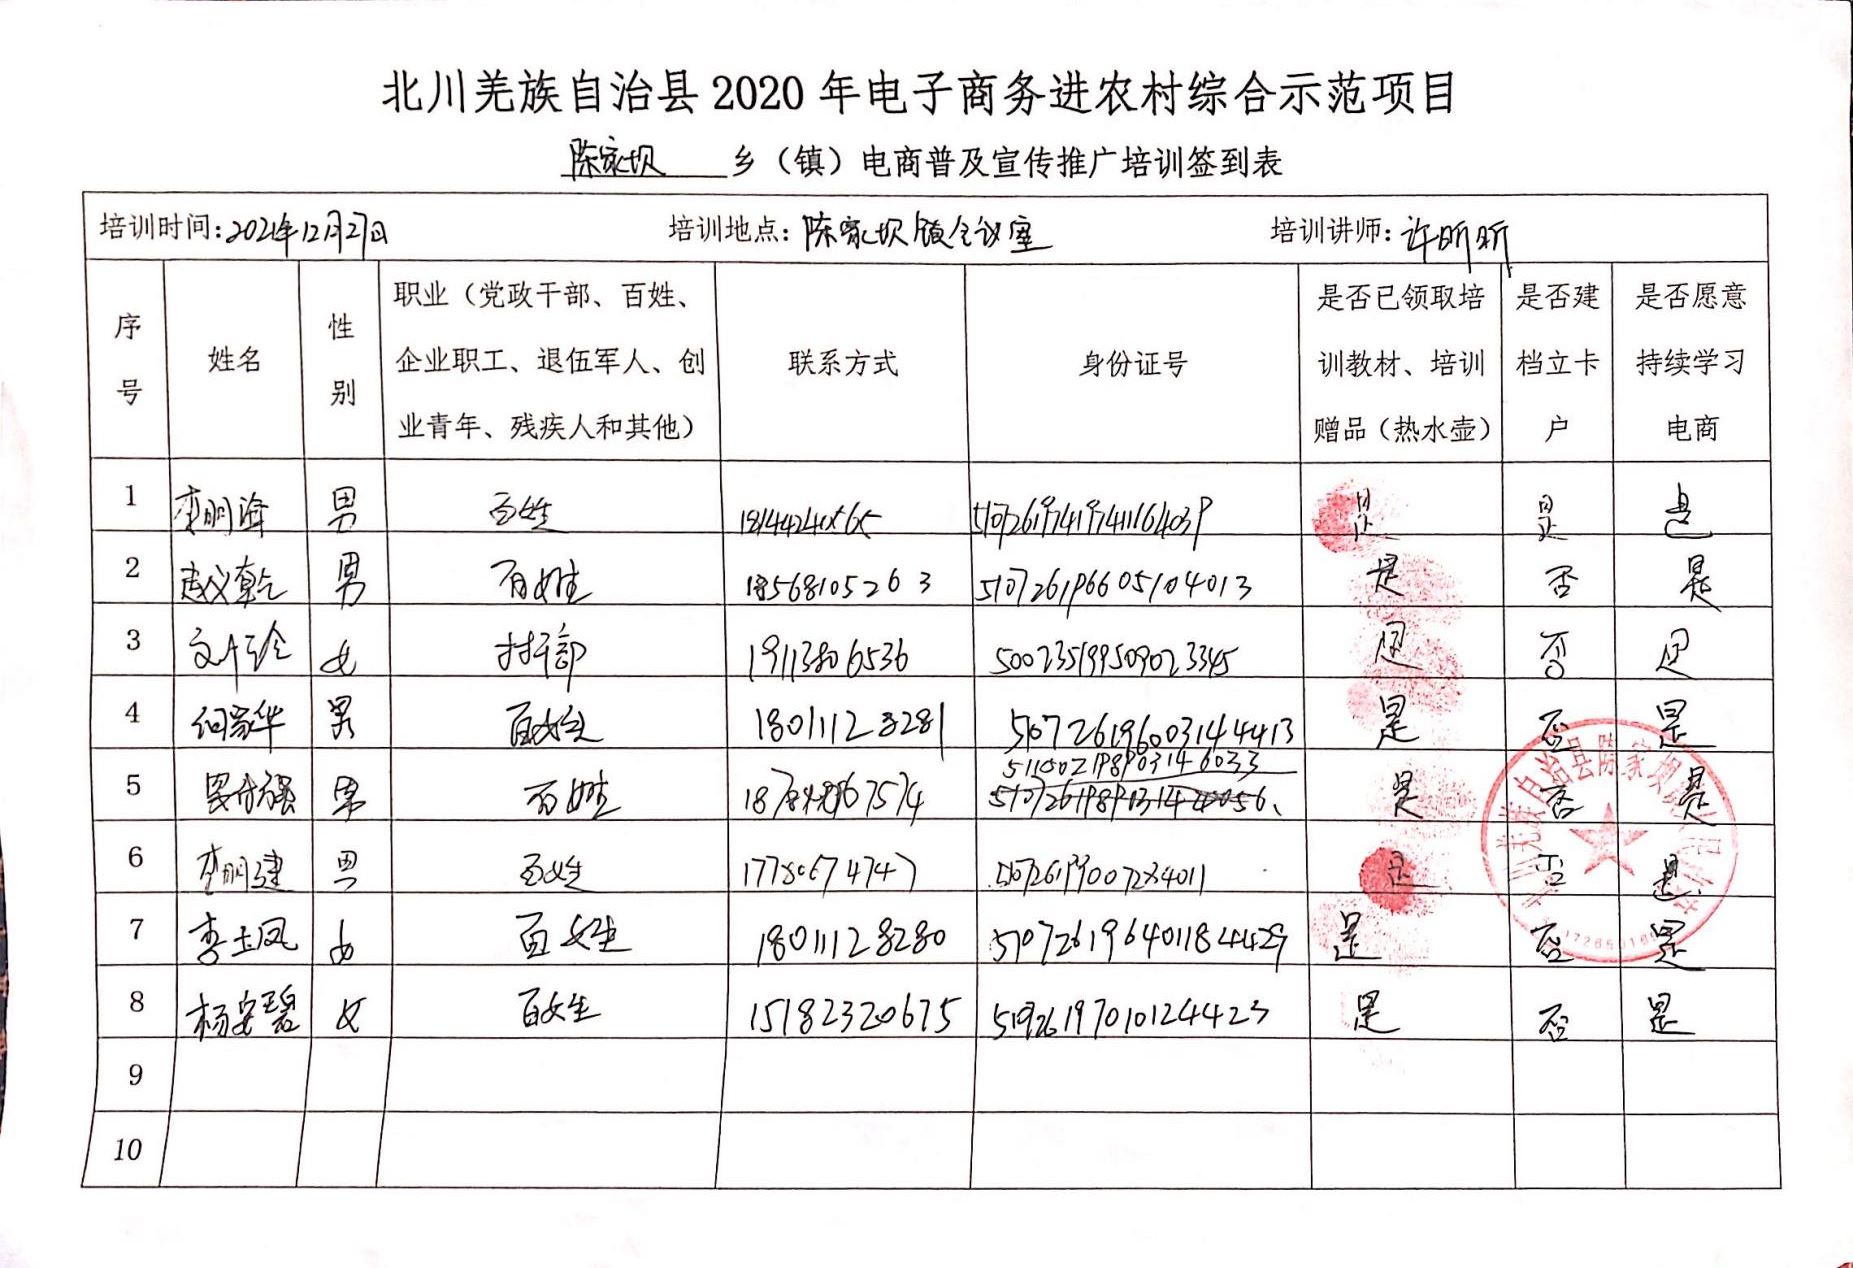 北川羌族自治县2020年电子商务进农村综合示范项目
陈家坝 乡（镇）电商普及宣传推广培训签到表
培训时间：2021年12月27日 培训地点：陈家坝镇会议室 培训讲师：许昕昕
序号 姓名 性别 职业（党政干部、百姓、企业职工、退伍军人、创业青年、残疾人和其他） 联系方式 身份证号 是否已领取培训教材、培训赠品（热水壶） 是否建档立卡户 是否愿意持续学习电商
1 男 百姓 是 是 是
2 男 百姓 18568105263 510726196605104013 是 否 是
3 女 村干部 19113806536 500235199509023345 是 否 是
4 何家华 男 百姓 18011128281 510726196003144413 是 否 是
5 男 百姓 511502198903146033 是 否 是
6 男 百姓 17780674747 是 否 是
7 李士凤 女 百姓 18011128280 510726196401184429 是 否 是
8 杨安碧 女 百姓 15182320675 510726197010124423 是 否 是
9
10